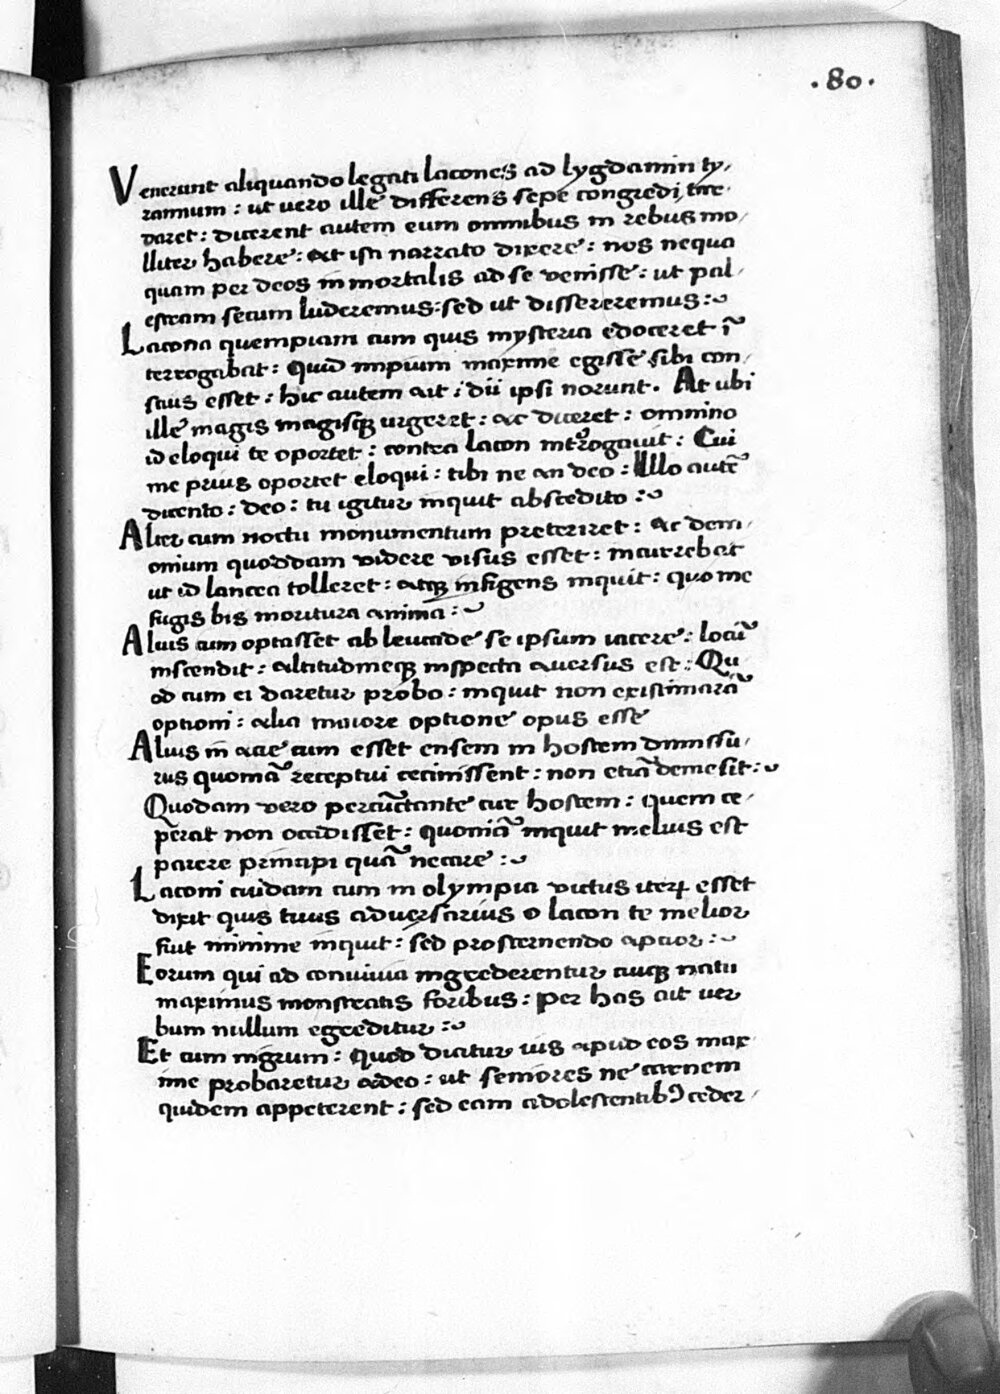 .80.
Venerunt aliquando legati lacones ad lygdamin ty/
rannum: ut uero ille differens sepe congredi, tire/
daret: dicerent autem eum omnibus in rebus mo/
lliter habere: at isti narrato dixere: nos nequa
quam per deos inmortalis ad se venisse: ut pal/
estram secum luderemus: sed ut dissereremus:~
Lacona quempiam cum quis mysteria edoceret ī
terrogabat: Quid impium maxime egisse sibi con/
scius esset: hic autem ait: dii ipsi norunt. At ubi
ille magis magisq urgeret: ac diceret: omnino
id eloqui te oportet: contra lacon int̄rogauit: Cui
me prius oportet eloqui: tibi ne an deo: Illo autē
dicento: deo: tu igitur inquit abscedito:~
Alier cum noctu monumentum preteriret: ac dem/
onium quoddam videre visus esset: incurrebat
ut id lancea tolleret: atq infigens inquit: quo me
fugis bis moritura anima:~
Aluis cum optasset ab leucade se ipsum iacere: locū
inscendit: altitudineq inspecta auersus est: Qu
od cum ei daretur probo: inquit non existimarā
optioni: alia maiore optione opus esse
Aluis in acie cum esset ensem in hostem dimissu/
rus quoniā receptui cecinissent: non etiā demesit:~
Quodam vero percūctante cur hostem: quem ce/
perat non occidisset: quoniā inquit melius est
parere principi quā necare:~
Laconi cuidam cum in olympia victus iterꝝ esset
dixit quis tuus aduersarius o lacon te melior
fiut minime inquit: sed prosternendo aptior:~
Eorum qui ad conuiuia ingrederentur cuiq natu
maximus monstratis foribus: per has ait uer
bum nullum egreditur:~
Et cum nigrum: quod dicitur ius apud eos max
ime probaretur adeo: ut seniores ne carnem
quidem appeterent: sed eam adolestentibꝰ ceder/